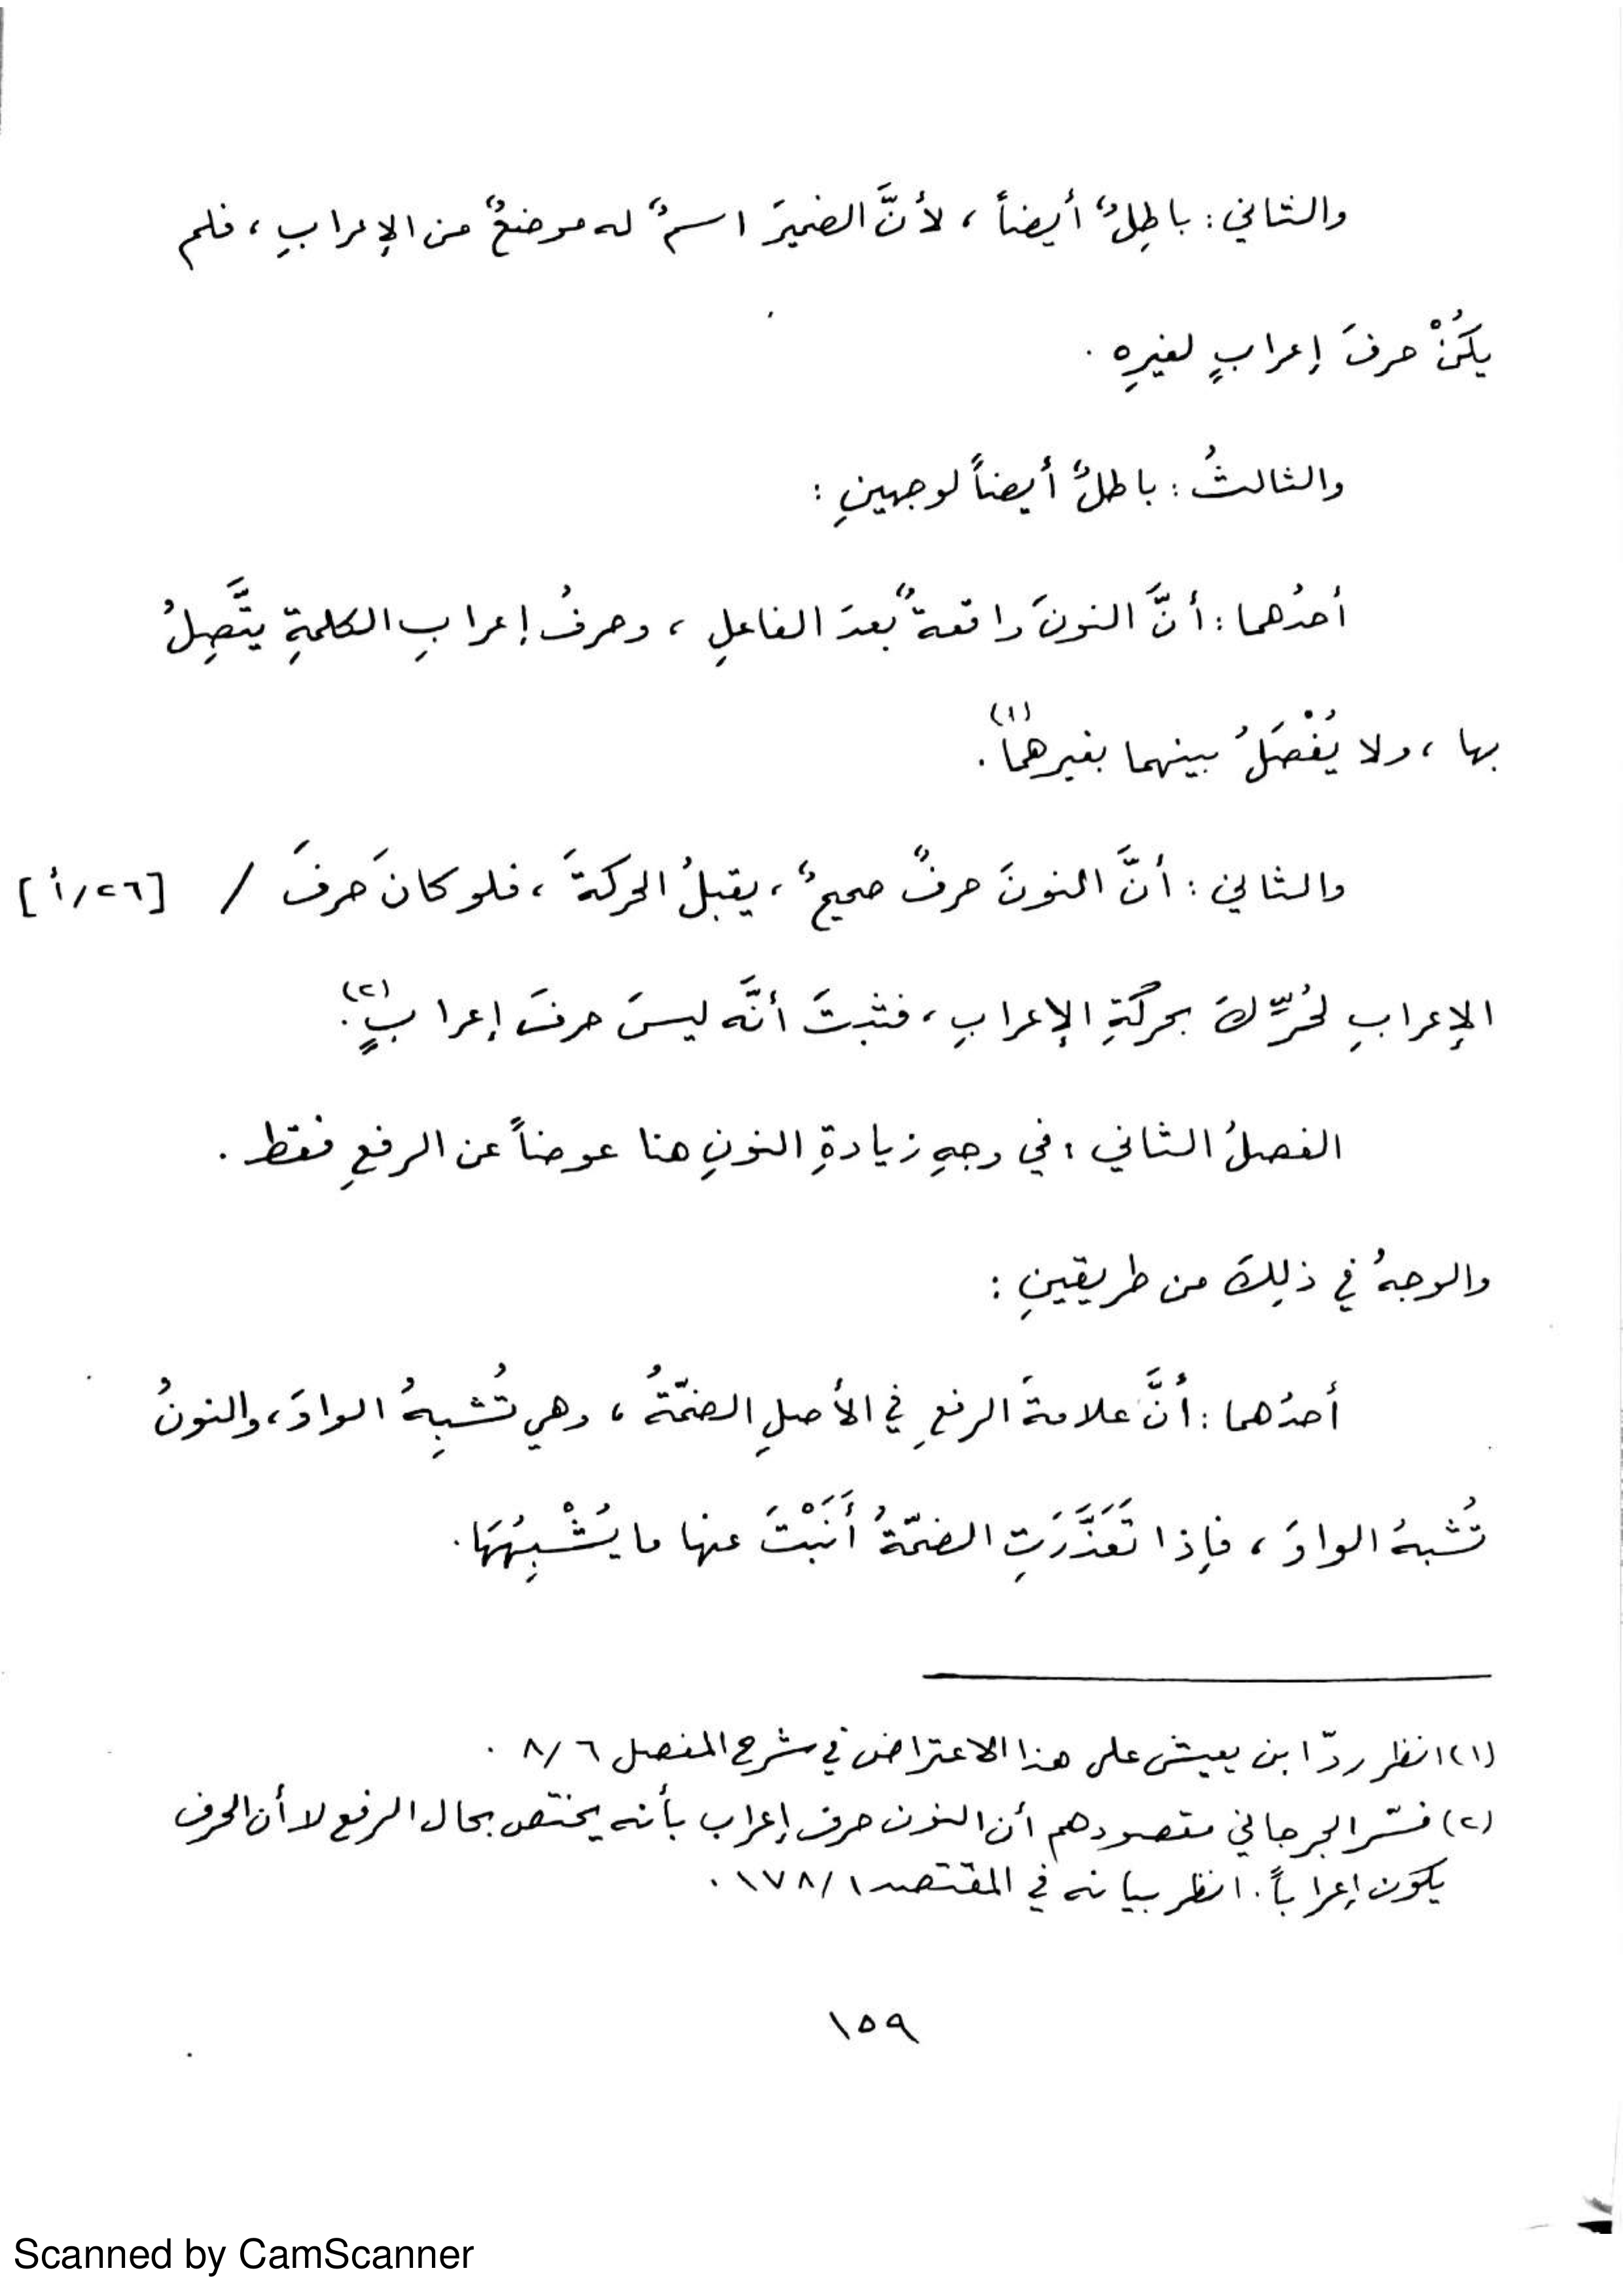 والثاني : باطِلٌ أيضاً ، لأنَّ الضميرَ اسمٌ له موضعٌ من الإعرابِ ، فلم
يكُنْ حرفَ إعرابٍ لغيرِهِ .
والثالثُ : باطلٌ أيضاً لوجهينِ :
أحدُهما : أنَّ النونَ واقعةٌ بعدَ الفاعلِ ، وحرفُ إعرابِ الكلمةِ يتَّصِلُ
بها ، ولا يُفْصَلُ بينهما بغيرهما(١) .
والثاني : أنَّ النونَ حرفٌ صحيحٌ ، يقبلُ الحركةَ ، فلو كانَ حرفَ / [٢٦/أ]
الإعرابِ لحُرِّكَ بحركَةِ الإعرابِ ، فثبتَ أنَّه ليسَ حرفَ إعرابٍ(٢) .
الفصلُ الثاني : في وجهِ زيادةِ النونِ هنا عوضاً عن الرفعِ فقط .
والوجهُ في ذلِكَ من طريقينِ :
أحدُهما : أنَّ علامةَ الرفعِ في الأصلِ الضمّةُ ، وهي تُشبِهُ الواوَ ، والنونُ
تُشبهُ الواوَ ، فإذا تَعَذَّرَتِ الضمّةُ أَنَبْتَ عنها ما يُشْبِهُهَا .
(١) انظر ردّ ابن يعيش على هذا الاعتراض في شرح المفصل ٨/٦ .
(٢) فسّر الجرجاني مقصودهم أن النون حرف إعراب بأنه يختص بحال الرفع لا أن الحرف
يكون إعراباً . انظر بيانه في المقتصد ١٧٨/١ .
١٥٩
Scanned by CamScanner